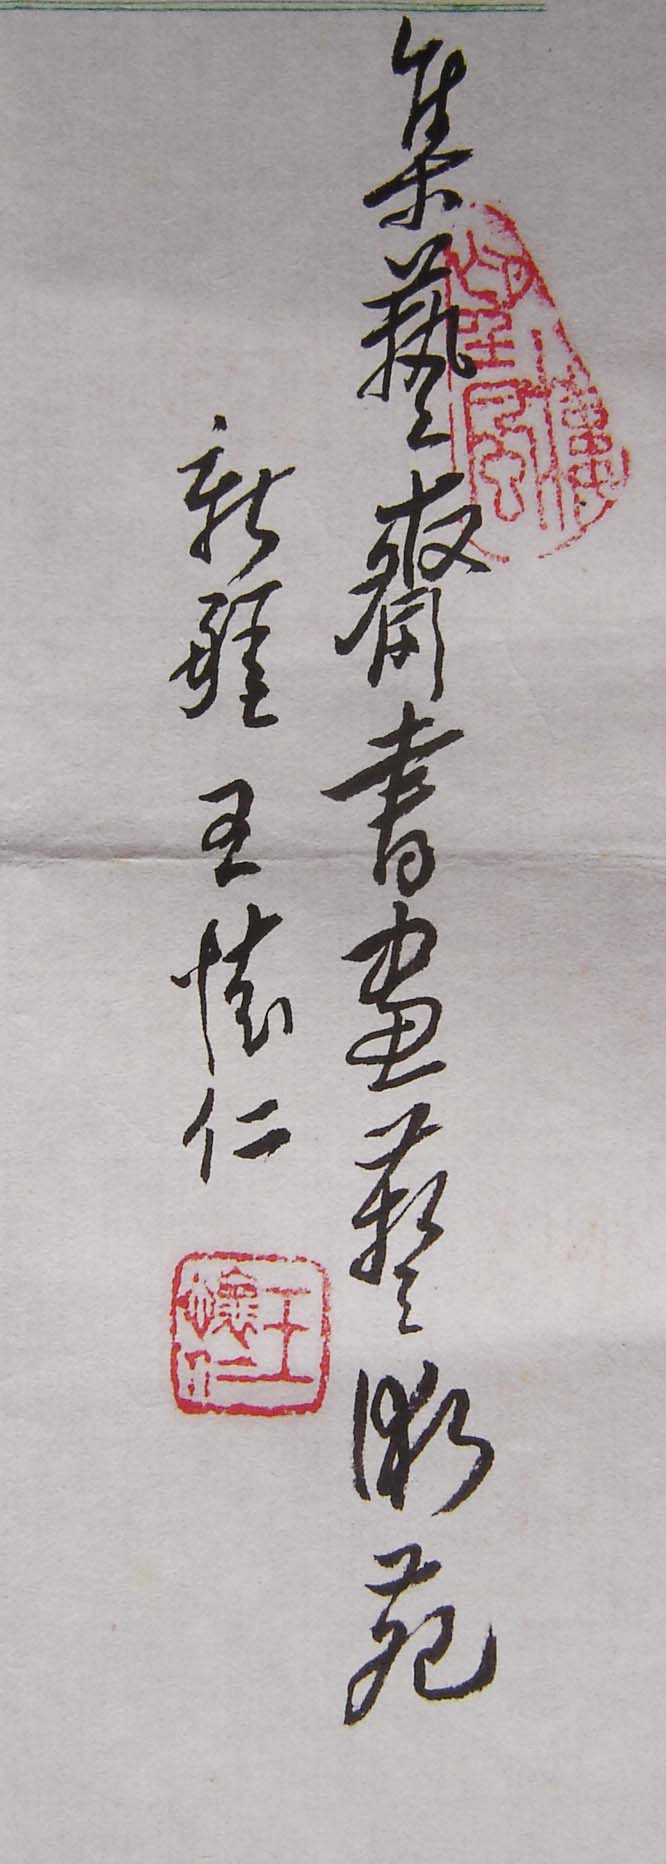 集藝齋書畫藝術苑
新疆 王懷仁
王懷仁印